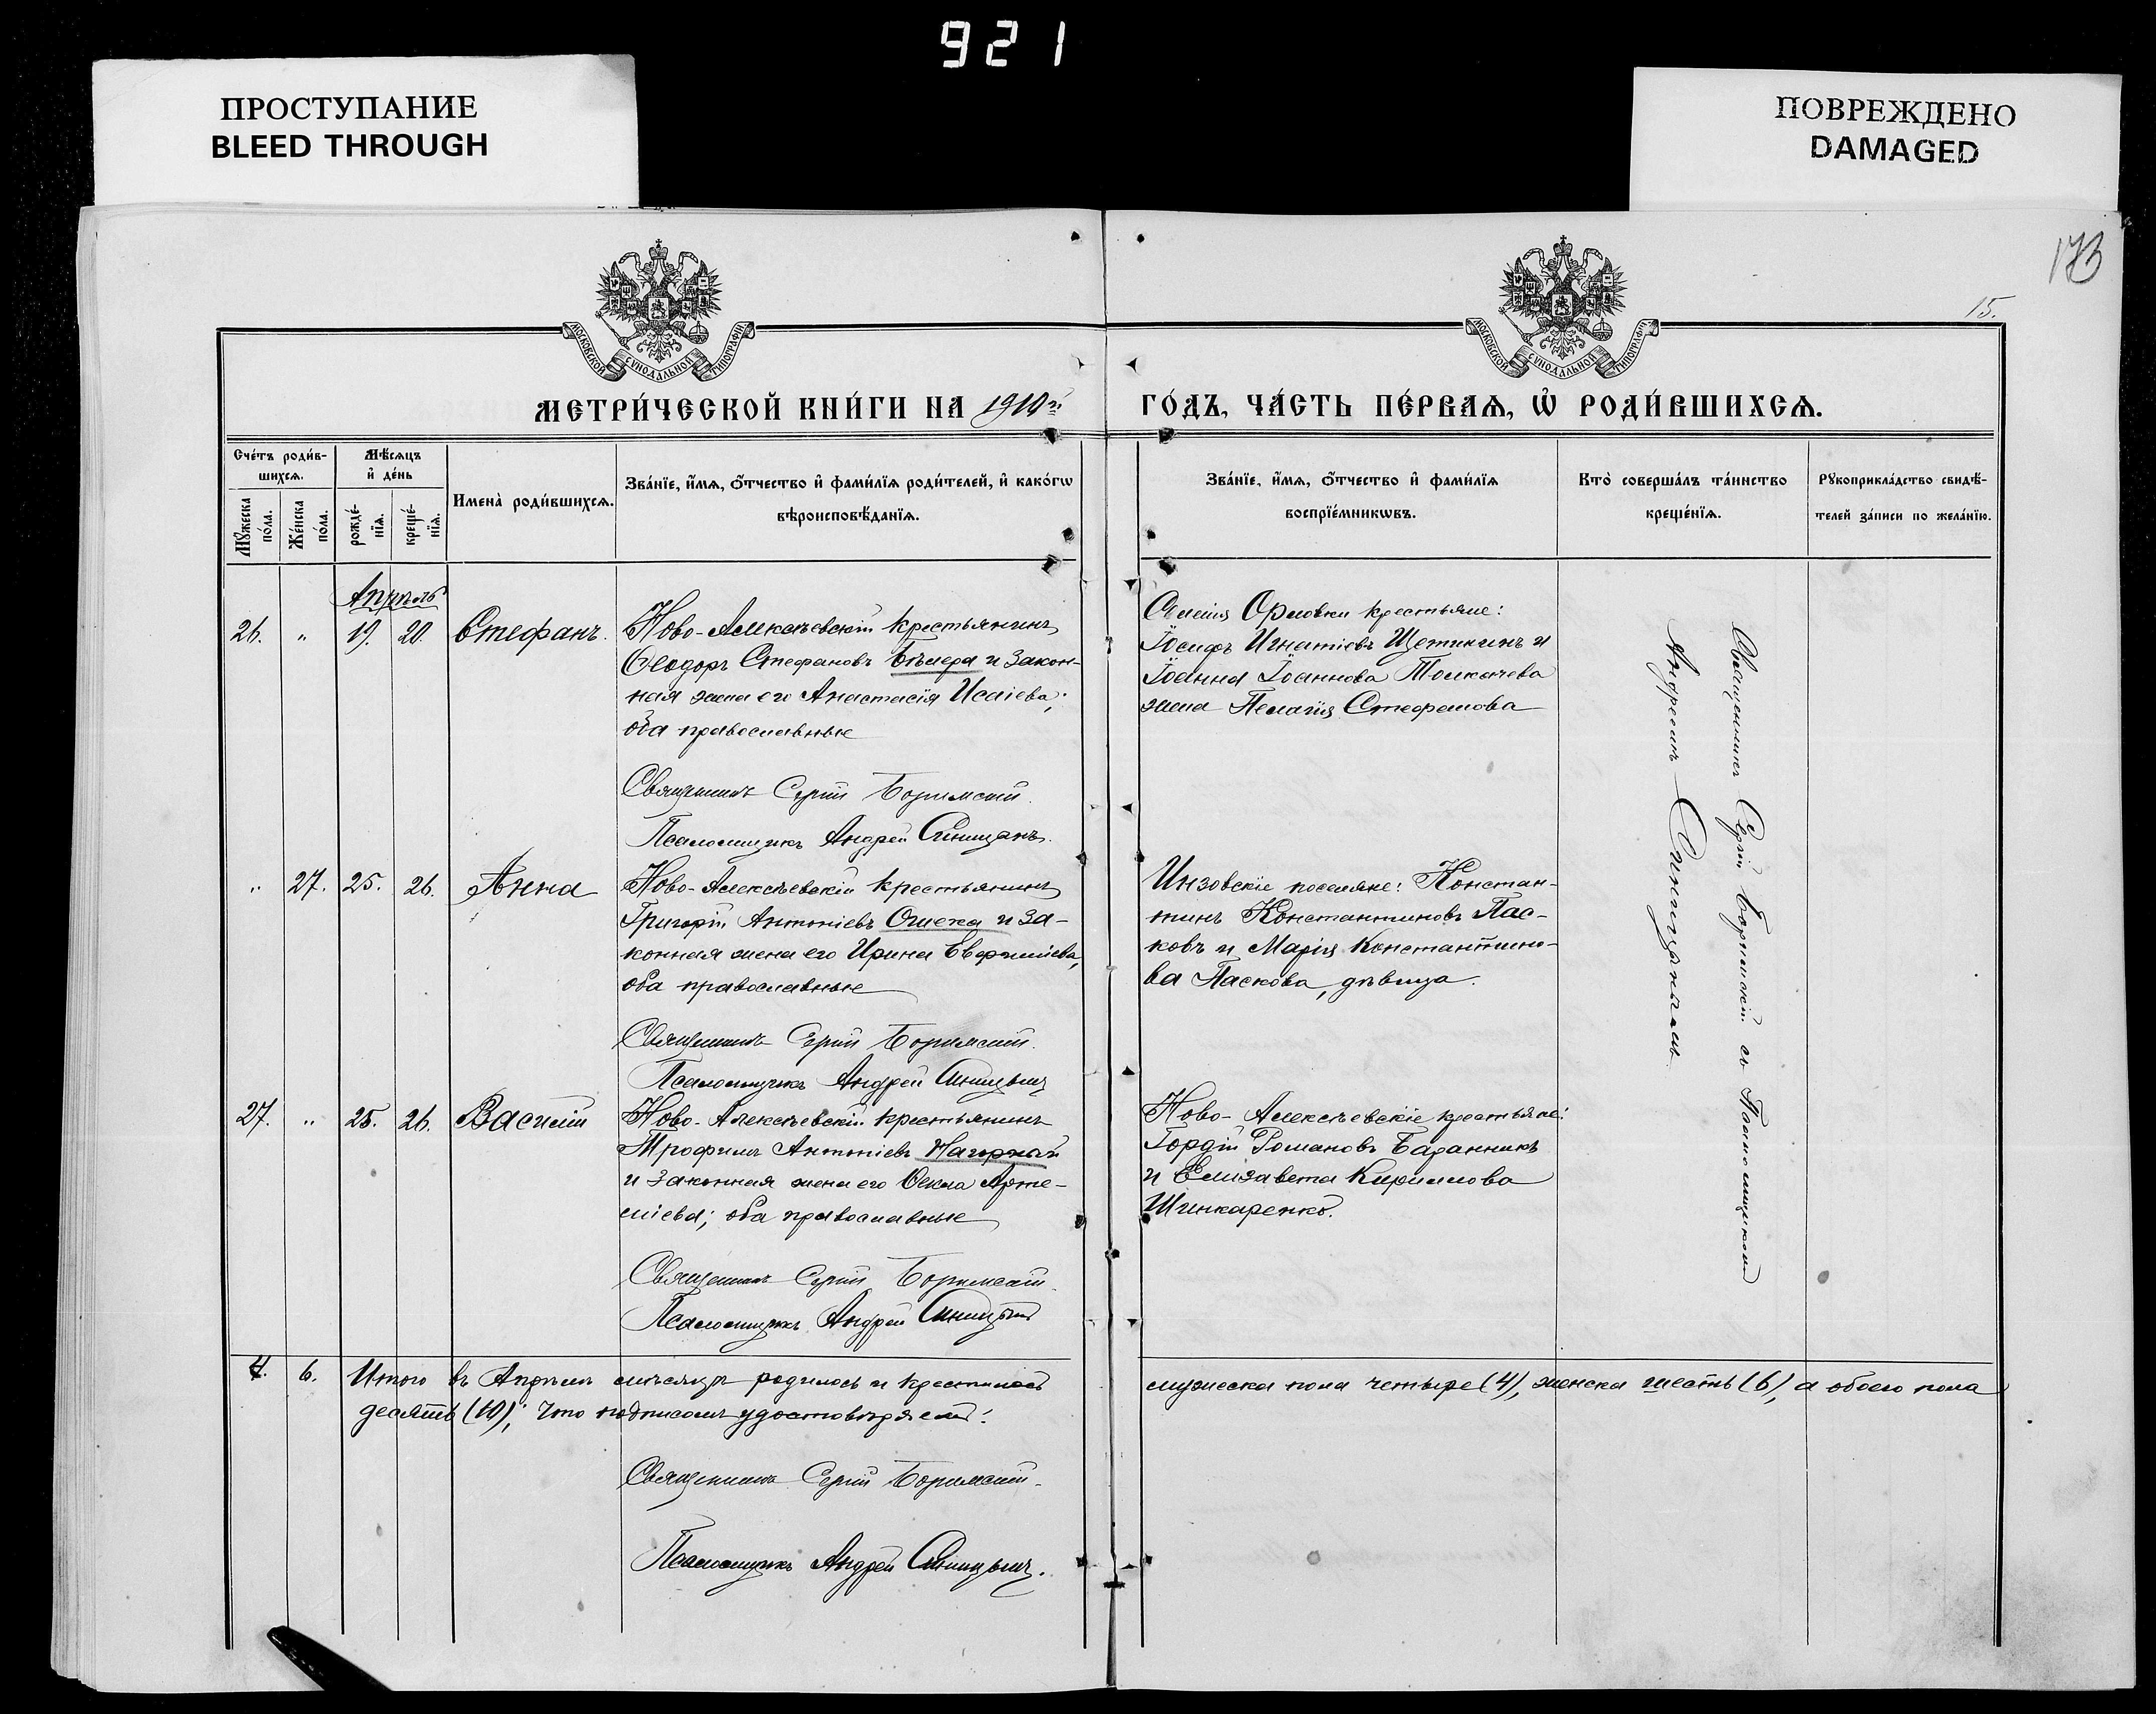 921
ПРОСТУПАНИЕ
BLEED THROUGH
ПОВРЕЖДЕНО
DAMAGED
173
15.
МОСКОВСКОЙ СѴНОДАЛЬНОЙ ТИПОГРАФІИ
МОСКОВСКОЙ СѴНОДАЛЬНОЙ ТИПОГРАФІИ
МЕТРИ́ЧЕСКОЙ КНИ́ГИ НА 1910й
ГО́ДЪ, ЧА́СТЬ ПЕ́РВАѦ, Ѡ РОДИ́ВШИХСѦ.
Сче́тъ роди́в-
шихсѧ.
Мѣ́сѧцъ
и҆ де́нь
Мꙋ́жеска по́ла.
Же́нска по́ла.
рожде́-
нїѧ.
креще́-
нїѧ.
Имена̀ роди́вшихсѧ.
Зва́нїе, и҆́мѧ, ѻ҆́тчество и҆ фами́лїѧ роди́телей, и҆ како́гѡ
вѣроисповѣ́данїѧ.
Зва́нїе, и҆́мѧ, ѻ҆́тчество и҆ фами́лїѧ
воспрїе́мникѡвъ.
Кто̀ соверша́лъ та́инство
креще́нїѧ.
Рꙋкоприкла́дство свидѣ́-
телей за́писи по жела́нїю.
Апрѣль
26. " 19. 20. Стефанъ.
Ново-Алексѣевскій крестьянинъ
Ѳеодоръ Стефановъ Бѣлера и закон-
ная жена его Анастасія Исаіева;
оба православные
Священникъ Сергій
Псаломщикъ Андрей Синицынъ.
Селенія Орловки крестьяне:
Іосифъ Игнатіевъ Щетининъ и
Іоанна Іоаннова Толкачева
жена Пелагія Стефанова
" 27. 25. 26. Анна
Ново-Алексѣевскій крестьянинъ
Григорій Антоніевъ Ошека и за-
конная жена его Ирина
оба православные
Священникъ Сергій
Псаломщикъ Андрей Синицынъ
Инзовскіе поселяне: Констан-
тинъ Константиновъ Пас-
ковъ и Марія Константино-
ва Паскова, дѣвица.
27. " 25. 26. Василій
Ново-Алексѣевскій крестьянинъ
Трофимъ Антоніевъ Нагорный
и законная жена его Ѳекла Арте-
міева; оба православные
Священникъ Сергій
Псаломщикъ Андрей Синицынъ
Ново-Алексѣевскіе крестьяне:
Гордій Романовъ Баранникъ
и Елизавета Кириллова
Шинкаренко.
Священникъ Сергій съ Псаломщикомъ
Андреемъ Синицынымъ
4. 6. Итого въ Апрѣлѣ мѣсяцѣ родилось и крестилось
мужеска пола четыре (4), женска шесть (6), а обоего пола
десять (10); что подписомъ удостовѣряемъ:
Священникъ Сергій
Псаломщикъ Андрей Синицынъ.